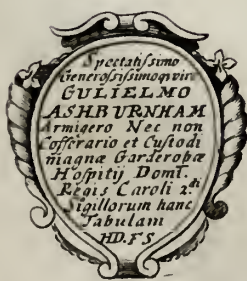 Spectatiſsimo
Generoſsiſsimoq; viro
GULIELMO
ASHBURNHAM
Armigero Nec non
Cofferario et Cuſtodi
magnæ Garderobæ
Hoſpitij Domi.
Regis Caroli 2.di
Sigillorum hanc
Tabulam
HD.FS